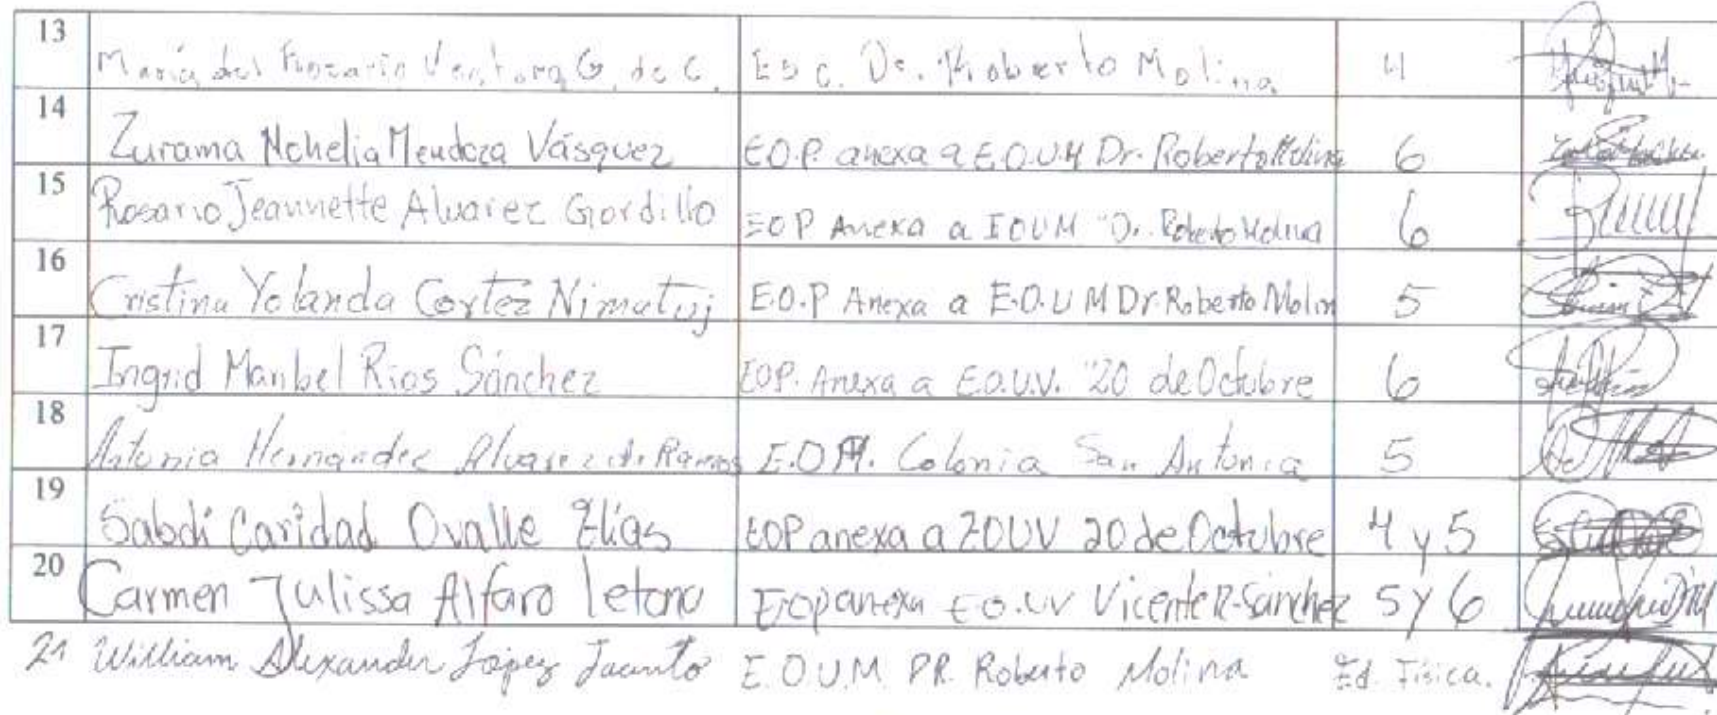 13 María del Rosario Ventura G. de C. Esc. Dr. Roberto Molina 4
14 Zurama Nohelia Mendoza Vásquez E.O.P. anexa a E.O.U.M Dr. Roberto Molina 6
15 Rosario Jeannette Alvarez Gordillo EOP Anexa a EOUM "Dr. Roberto Molina 6
16 Cristina Yolanda Cortez Nimatuj E.O.P Anexa a E.O.U M Dr. Roberto Molin 5
17 Ingrid Maribel Rios Sánchez EOP. Anexa a E.O.U.V. "20 de Octubre 6
18 Antonia Hernández Alvarez de Ramos E.O.M. Colonia San Antonia 5
19 Sabdi Caridad Ovalle Elías EOP anexa a EOUV 20 de Octubre 4 y 5
20 Carmen Julissa Alfaro Letona E.O.P anexa E.O.UV Vicente R. Sánchez 5 y 6
21 William Alexander López Jacinto E.O.U.M. DR. Roberto Molina Ed. Física.